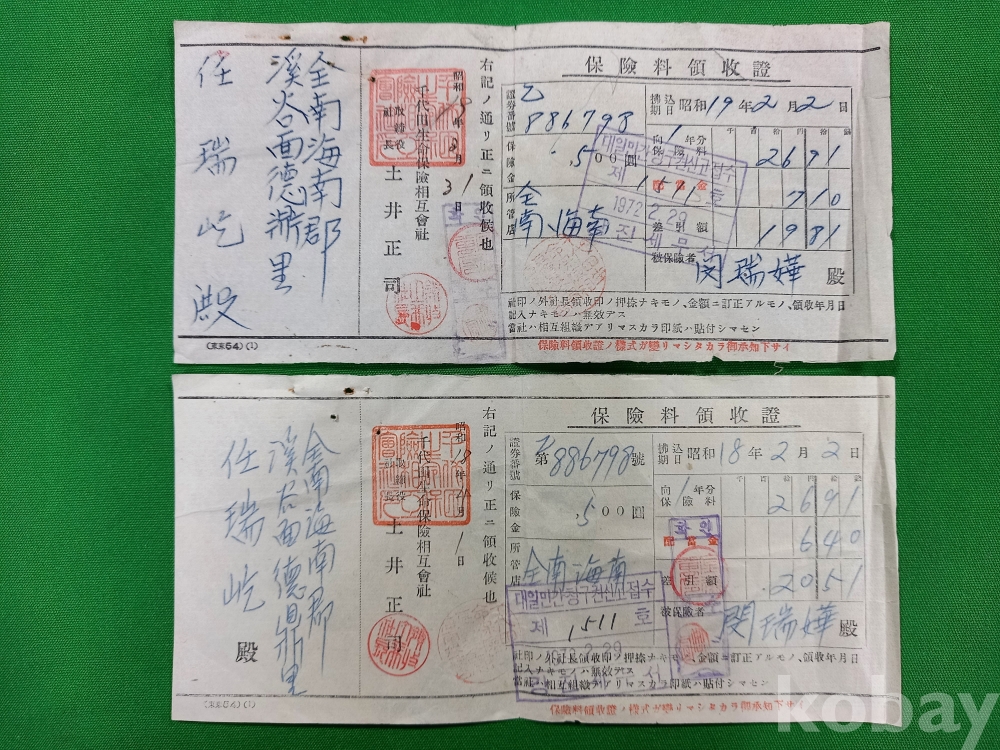 保險料領收證
證券番號
乙
886798
拂込期日 昭和19年2月2日
保險金
.500圓
向1年分保險料
2691
配當金
710
差引額
1981
所管店
全南、海南
被保險者
閔瑞嬅 殿
대일민간청구권신고접수
제 1511 호
1972.2.29
진 세무서
확인
社印ノ外社長領收印ノ押捺ナキモノ、金額ニ訂正アルモノ、領收年月日
記入ナキモノハ無效デス
當社ハ相互組織デアリマスカラ印紙ハ貼付シマセン
保險料領收證ノ樣式ガ變リマシタカラ御承知下サイ
右記ノ通リ正ニ領收候也
昭和19年3月31日
千代田生命保險相互會社
取締役社長 土井正司
全南海南郡
溪谷面德鼎里
任瑞屹殿
(東京64)(1)
保險料領收證
證券番號
乙第886798號
拂込期日 昭和18年2月2日
保險金
.500圓
向1年分保險料
2691
配當金
640
差引額
2051
所管店
全南、海南
被保險者
閔瑞嬅 殿
확인
대일민간청구권신고접수
제 1511 호
1972.2.29
社印ノ外社長領收印ノ押捺ナキモノ、金額ニ訂正アルモノ、領收年月日
記入ナキモノハ無效デス
當社ハ相互組織デアリマスカラ印紙ハ貼付シマセン
保險料領收證ノ樣式ガ變リマシタカラ御承知下サイ
右記ノ通リ正ニ領收候也
千代田生命保險相互會社
取締役社長 土井正司
全南海南郡
溪谷面德鼎里
任瑞屹 殿
(東京64)(1)
kobay